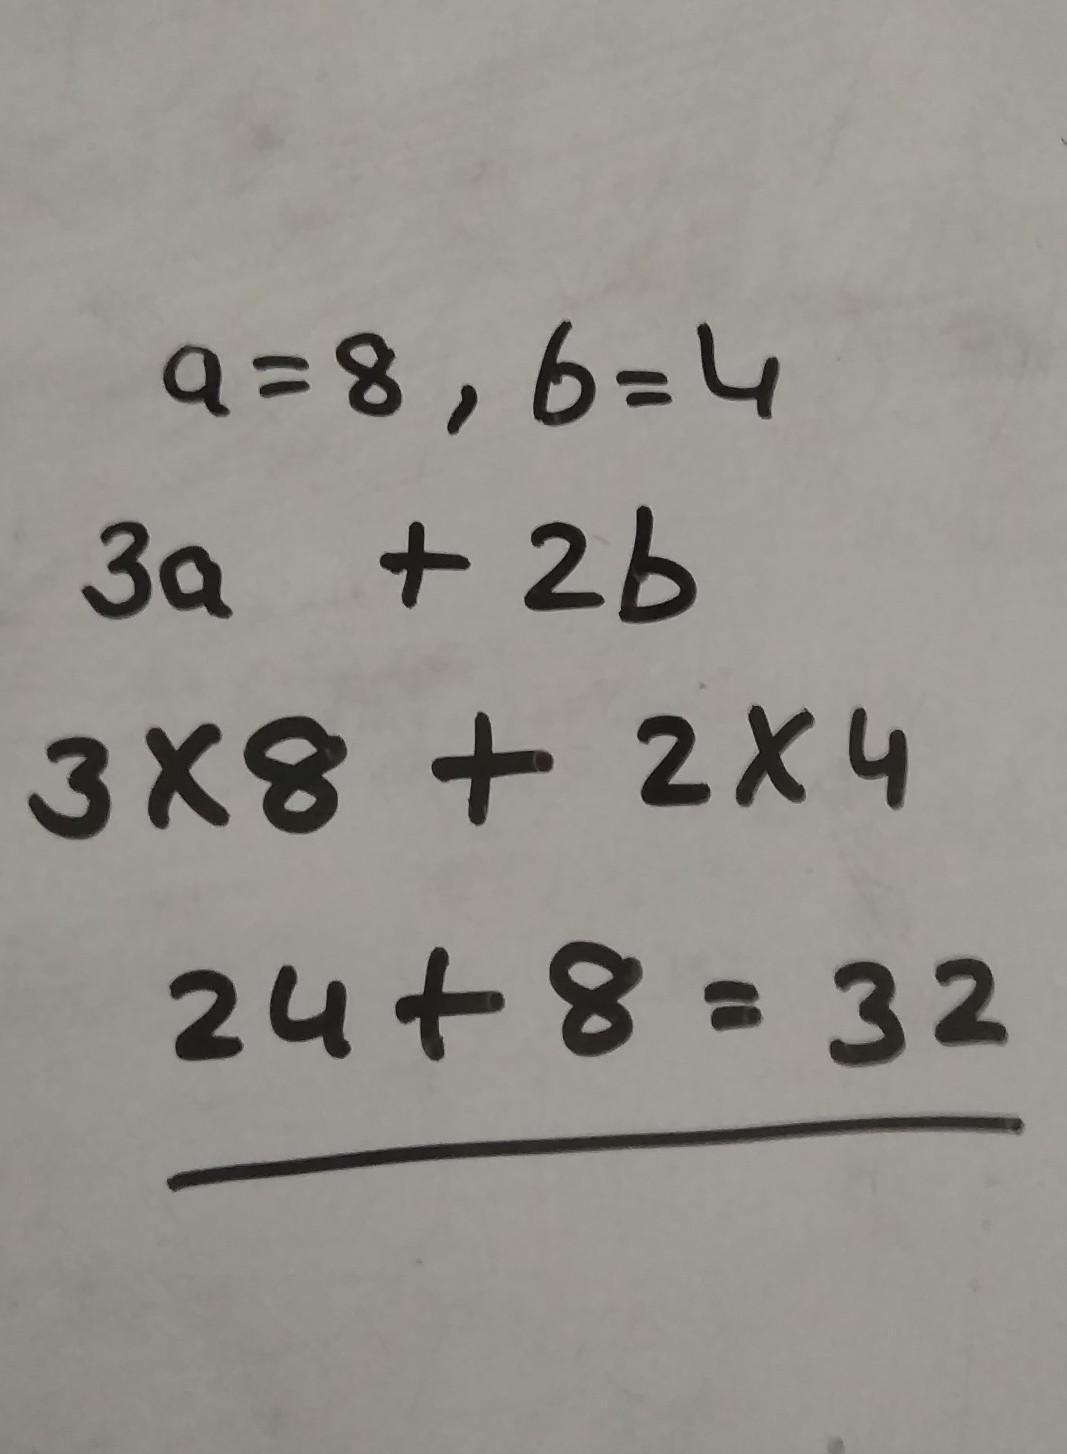 a=8, b=4
3a + 2b
3x8 + 2x4
24+8 = 32